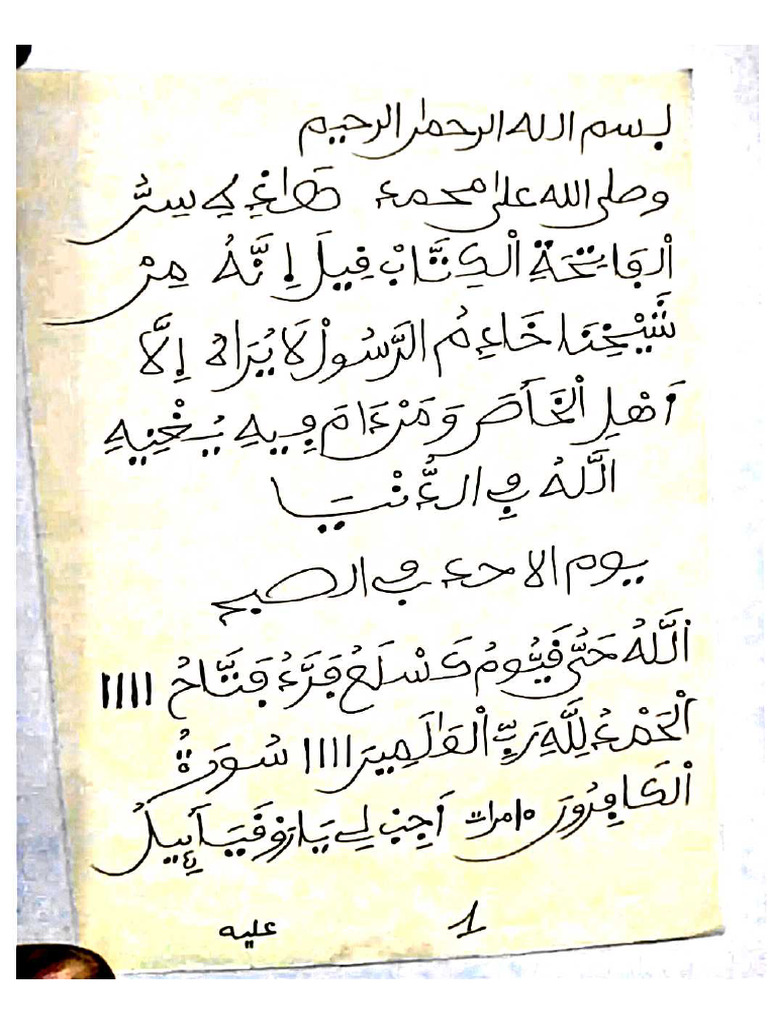 بسم الله الرحمن الرحيم
وصلى الله على محمد هَاذِ فِي سِرُّ
الفَاتِحَةِ الْكِتَّابْ قِيلَ إِنَّهُ مِنْ
شَيْخِنَا خَادِمُ الرَّسُولْ لَا يُرَاهُ إِلَّا
أَهْلِ الْخَأصَ وَمَنْ دَامَ فِيهِ يُغْنِيهِ
اللَّهُ فِي الدُّنْيَا
يوم الاحد في الصبح
اللَّهُ حَىُّ قَيُّومُ فَرَّدُ فَتَّاحُ 1111
الْحَمْدُ لِلَّهِ رَبِّ الْعَالَمِينَ 1111 سُورَةُ
الْكَافِرُونَ 10 مرات أَجِبْ لِي يَا رَوْقَيَائِيلُ
1 عليه